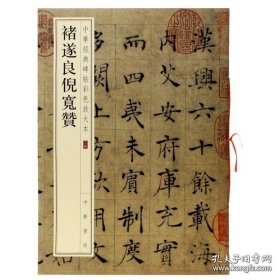 漢興六十餘載海
內艾安府庫充實
而四夷未賓制度
中華經典碑帖彩色放大本
褚遂良倪寬贊
中華書局
孔夫子旧书网